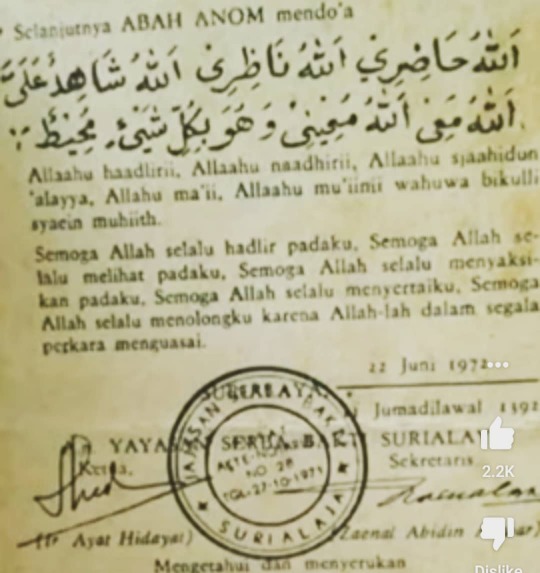 Selanjutnya ABAH ANOM mendo'a
اَللهُ حَاضِرِيْ اَللهُ نَاظِرِيْ اَللهُ شَاهِدٌ عَلَيَّ
اَللهُ مَعِيْ اَللهُ مُعِيْنِيْ وَهُوَ بِكُلِّ شَيْئٍ مُحِيْطٌ
Allaahu haadlirii, Allaahu naadhirii, Allaahu sjaahidun
'alayya, Allahu ma'ii, Allaahu mu'iinii wahuwa bikulli
syaein muhiith.
Semoga Allah selalu hadlir padaku, Semoga Allah se-
lalu melihat padaku, Semoga Allah selalu menyaksi-
kan padaku, Semoga Allah selalu menyertaiku, Semoga
Allah selalu menolongku karena Allah-lah dalam segala
perkara menguasai.
22 Juni 1972
Jumadilawal 1392
YAYASAN SERBA BAKTI SURIALAYA
Ketua,
Sekretaris
AKTE-NO
NO 28
TGL-27-10-1971
SURIALAJA
Ayat Hidayat)
(Zaenal Abidin
Mengetahui dan menyerukan
2.2K
Dislike